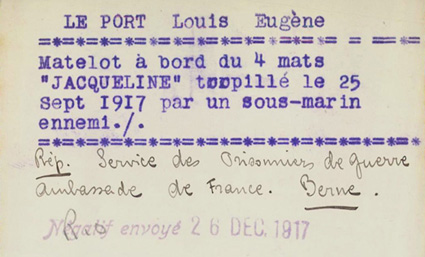 LE PORT Louis Eugène
=*=*=*=*=*=*=*=*=*=*=*=*=*=*= = =*=*
Matelot à bord du 4 mats
"JACQUELINE" torpillé le 25
Sept 1917 par un sous-marin
ennemi./.
=*=*=*=*=*=*=*=*=*=*=*=*=*=*=*=*=*=*
Rép. Service des Prisonniers de guerre
Ambassade de France. Berne.
Négatif envoyé 26 DEC. 1917